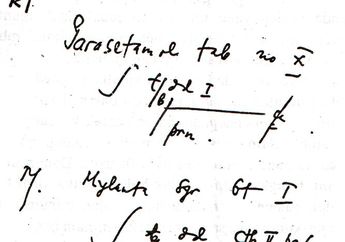 R/.
Parasetamol tab no X
ʃ t/b dd I
prn.
R/. Mylanta syr btl I
ʃ dd cth II